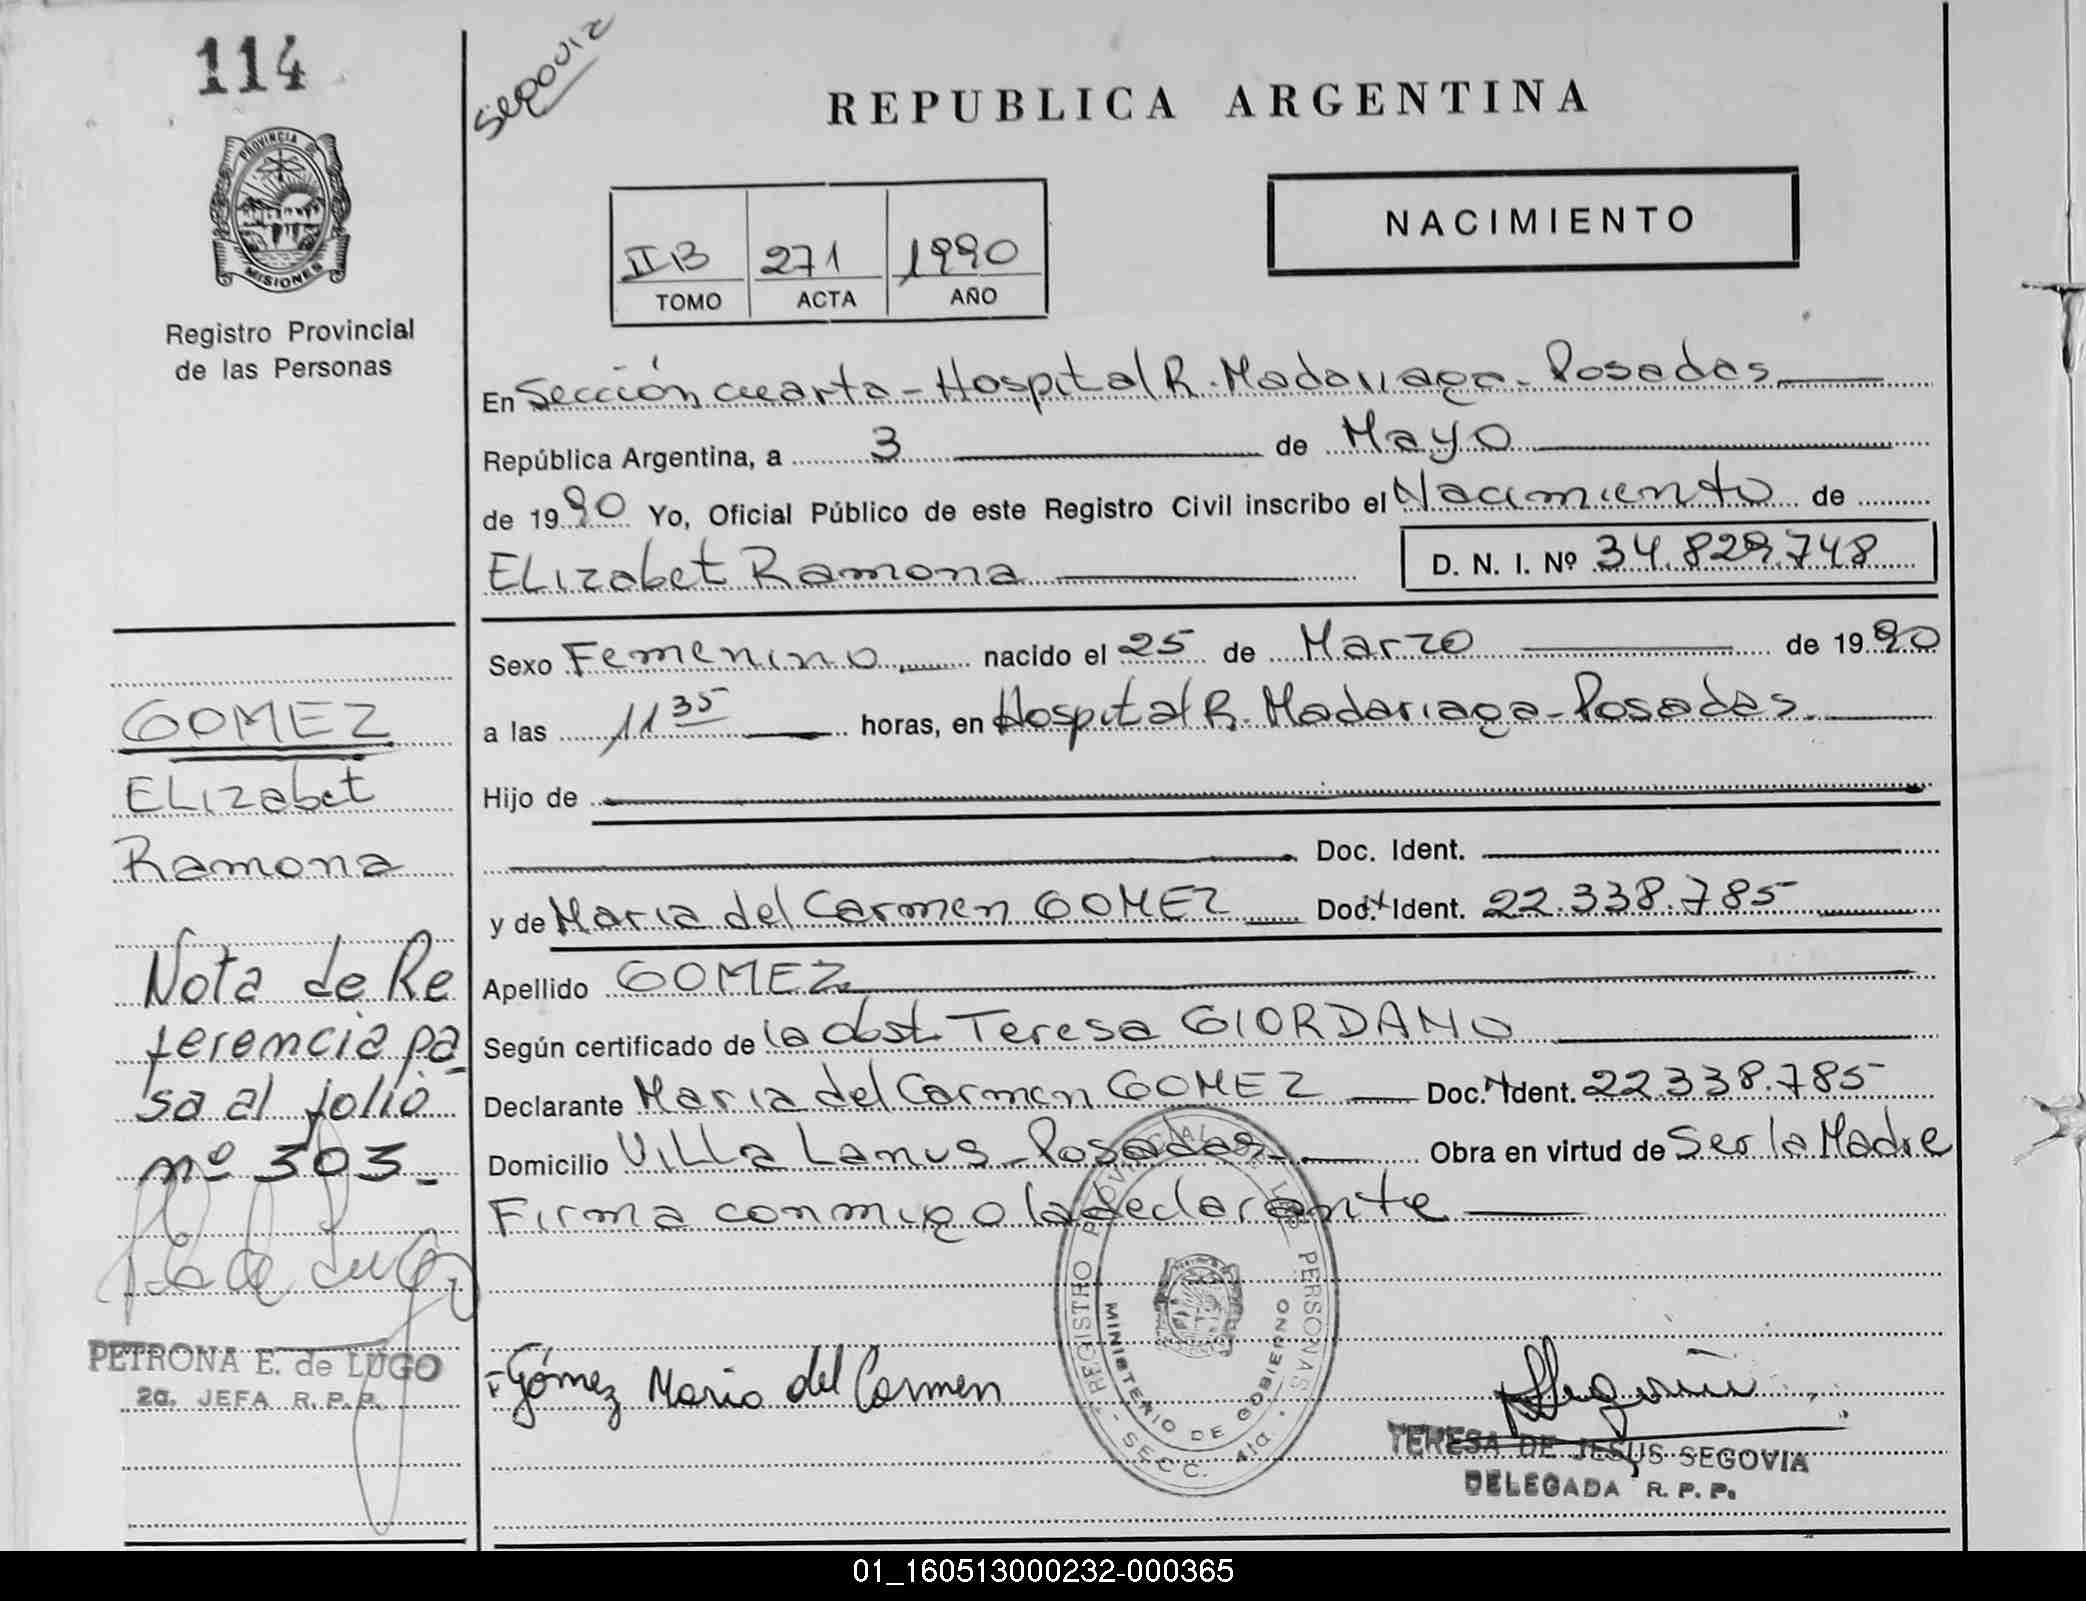 114
Segovia
REPUBLICA ARGENTINA
PROVINCIA DE
MISIONES
Registro Provincial
de las Personas
NACIMIENTO
II B 271 1990
TOMO ACTA AÑO
En Sección cuarta - Hospital R. Madariaga - Posadas
República Argentina, a 3 de Mayo
de 1990 Yo, Oficial Público de este Registro Civil inscribo el Nacimiento de
ELizabet Ramona D. N. I. Nº 34.829.748
Sexo Femenino nacido el 25 de Marzo de 1990
a las 11 35 horas, en Hospital R. Madariaga - Posadas.
Hijo de
Doc. Ident.
y de Maria del Carmen GOMEZ Doc. Ident. 22.338.785
Apellido GOMEZ
Según certificado de la obst. Teresa GIORDANO
Declarante Maria del Carmen GOMEZ Doc. Ident. 22.338.785
Domicilio Villa Lanus - Posadas - Obra en virtud de Ser la Madre
Firma conmigo la declarante
GOMEZ
ELizabet
Ramona
Nota de Re
ferencia pa-
sa al folio
nº 303.-
PETRONA E. de LUGO
2a. JEFA R. P. P.
Gómez Maria del Carmen
REGISTRO PROVINCIAL DE LAS PERSONAS
MINISTERIO DE GOBIERNO
SECC. 4ta.
TERESA DE JESUS SEGOVIA
DELEGADA R. P. P.
01_160513000232-000365